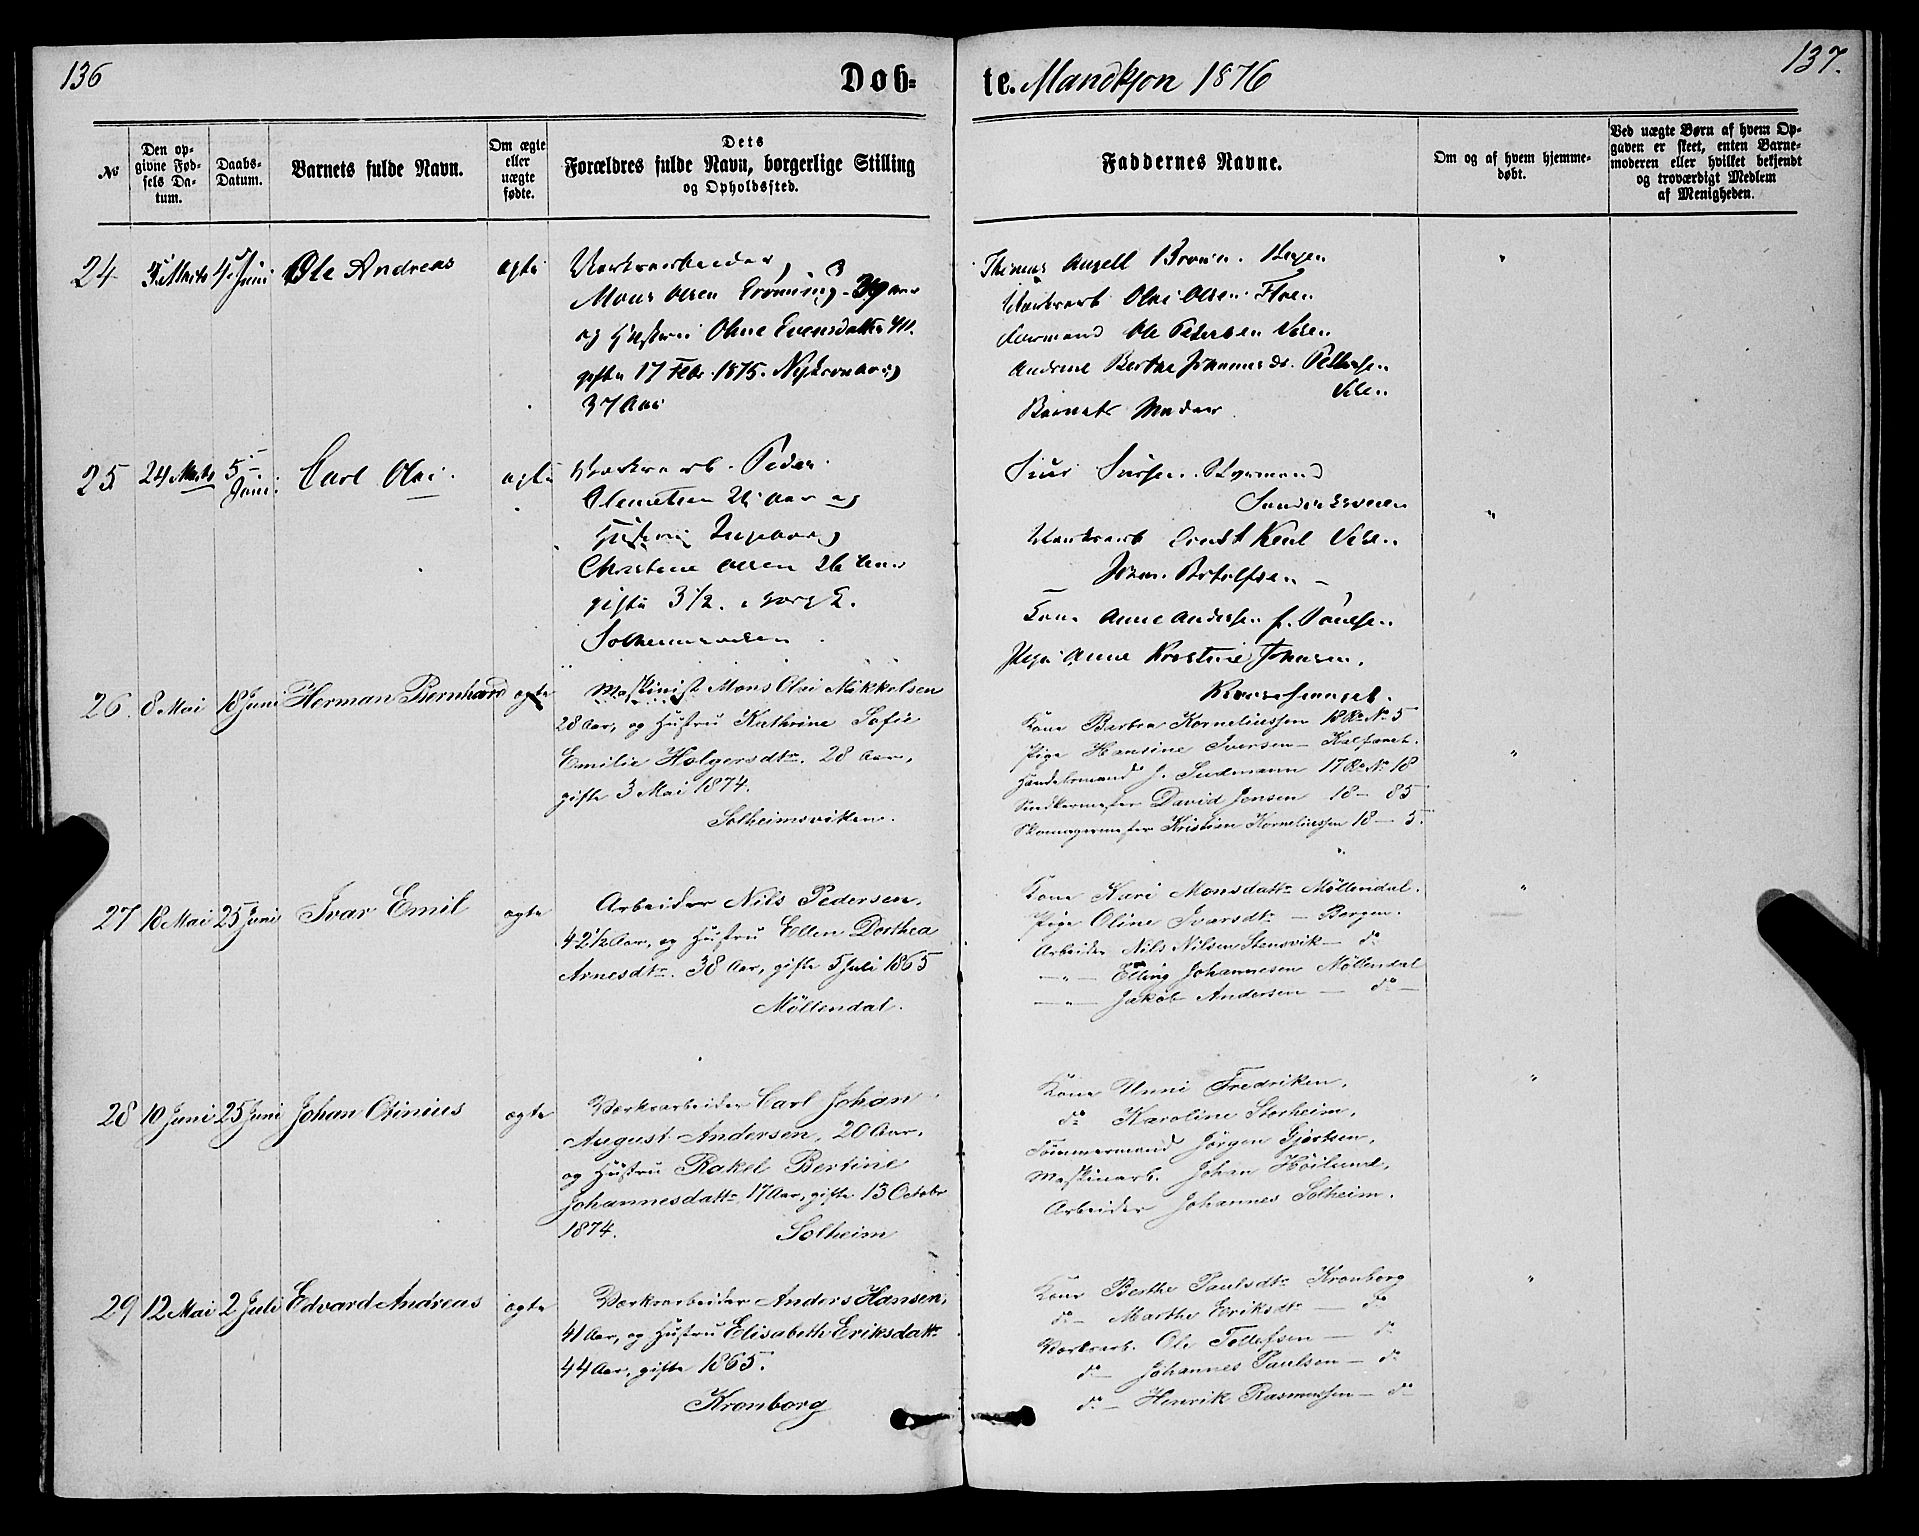 136
Døb-
te. Mandkjøn 1876
137.
No
Den op-
givne Fød-
sels Da-
tum.
Daabs-
Datum.
Barnets fulde Navn.
Om ægte
eller
uægte
fødte.
Dets
Forældres fulde Navn, borgerlige Stilling
og Opholdssted.
Faddernes Navne.
Om og af hvem hjemme-
døbt.
Ved uægte Børn af hvem Op-
gaven er skeet, enten Barne-
moderen eller hvilket bekjendt
og troværdigt Medlem
af Menigheden.
24 Marts 4 Juni Ole Andreas ægte
Mons Olsen
og Hustru Oline Evensdatter 40.
gifte 17 Febr. 1875.
37 Aar
Thomas Angell Bruun.
Olai Olsen
Formand Ole Petersen
Andrine Berthe Johannesd.
Barnets Moder.
25 24 Marts 5 Juni Carl Olai. ægte
Peder
Aar og
Hustru Ingeborg
Christine Olsen 26 Aar
gifte
Styrmand
Johan
Kone Anne Andersen f.
Pige Anne Kristine Johnsen.
26. 8 Mai 18 Juni Herman Bernhard ægte
Maskinist Mons Olai Mikkelsen
28 Aar, og Hustru Kathrine Sofie
Emilie Holgersdtr. 28 Aar,
gifte 3 Mai 1874.
Solheimsviken.
Kone Barbra Korneliussen 18 R. No 5
Pige Hansine Iversen - Kalfaret.
Handelsmand J. Sudmann 17 R. No 18
Snedkermester David Jensen 18 - 85
Skomagermester Kristian Korneliussen 18 - 5.
27 18 Mai 25 Juni Ivar Emil ægte
Arbeider Nils Pedersen,
42½ Aar, og Hustru Ellen Dorthea
Arnesdtr. 38 Aar, gifte 5 Juli 1865
Möllendal.
Kone Kari Monsdattr Möllendal.
Pige Oline Ivarsdtr - Bergen.
Arbeider Nils Nilsen Stensvik - do
- " - Elling Johannesen Möllendal
- " - Jakob Andersen - do -
28 10 Juni 25 Juni Johan Otinius ægte
Værksarbeider Carl Johan
August Andersen, 20 Aar,
og Hustru Rakel Bertine
Johannesdattr, 17 Aar, gifte 13 Octobr
1874.
Solheim
Kone Unni Fredriken,
do Karoline Storheim,
Tömmermand Jörgen Gjertsen,
Maskinarb. Johan Höilund,
Arbeider Johannes Solheim.
29 12 Mai 2 Juli Edvard Andreas ægte
Værksarbeider Anders Hansen,
41 Aar, og Hustru Elisabeth Eriksdattr
44 Aar, gifte 1865.
Kronborg
Kone Berthe Paulsdtr Kronborg
do - Marthe Eriksdtr - do
Værksarb. Ole Tollefsen - do
do - Johannes Paulsen - do
do - Henrik Rasmussen - do